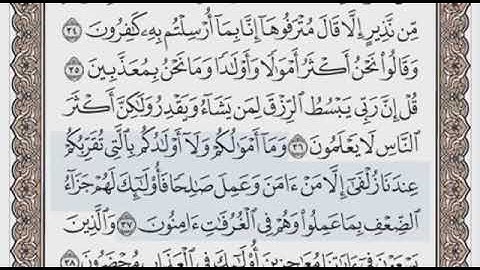 مِّن نَّذِيرٍ إِلَّا قَالَ مُتْرَفُوهَآ إِنَّا بِمَآ أُرْسِلْتُم بِهِۦ كَٰفِرُونَ ٣٤
وَقَالُوا۟ نَحْنُ أَكْثَرُ أَمْوَٰلًا وَأَوْلَٰدًا وَمَا نَحْنُ بِمُعَذَّبِينَ ٣٥
قُلْ إِنَّ رَبِّى يَبْسُطُ ٱلرِّزْقَ لِمَن يَشَآءُ وَيَقْدِرُ وَلَٰكِنَّ أَكْثَرَ
ٱلنَّاسِ لَا يَعْلَمُونَ ٣٦ وَمَآ أَمْوَٰلُكُمْ وَلَآ أَوْلَٰدُكُم بِٱلَّتِى تُقَرِّبُكُمْ
عِندَنَا زُلْفَىٰٓ إِلَّا مَنْ ءَامَنَ وَعَمِلَ صَٰلِحًا فَأُو۟لَٰٓئِكَ لَهُمْ جَزَآءُ
ٱلضِّعْفِ بِمَا عَمِلُوا۟ وَهُمْ فِى ٱلْغُرُفَٰتِ ءَامِنُونَ ٣٧ وَٱلَّذِينَ
يَسْعَوْنَ فِىٓ ءَايَٰتِنَا مُعَٰجِزِينَ أُو۟لَٰٓئِكَ فِى ٱلْعَذَابِ مُحْضَرُونَ ٣٨